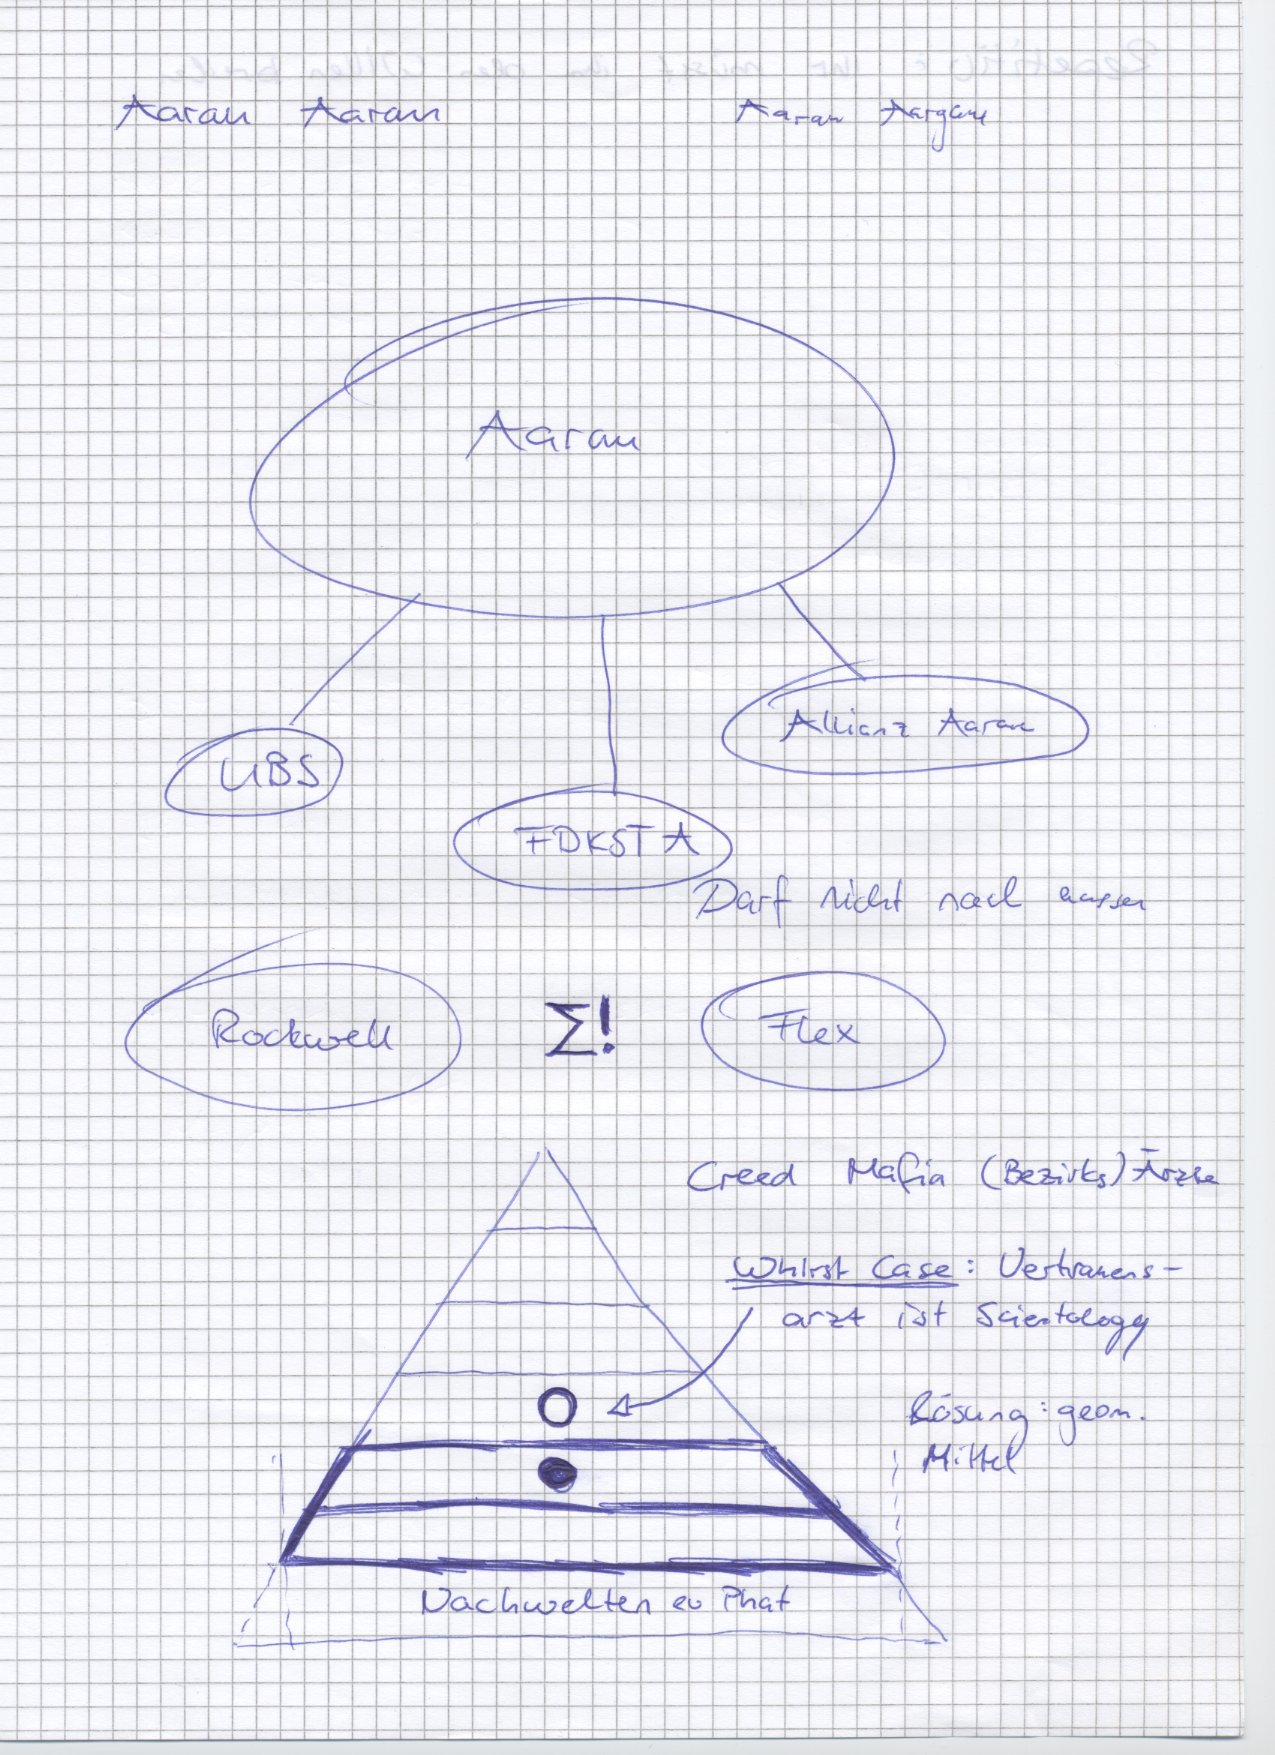 Aarau Aarau
Aarau Aargau
Aarau
UBS
Allianz Aarau
FDKST A
Darf nicht nach aussen
Rockwell
Σ!
Flex
Creed Mafia (Bezirks) Ärzte
Whirst Case: Vertrauens-
arzt ist Scientology
Lösung: geom.
Mittel
Nachwelten